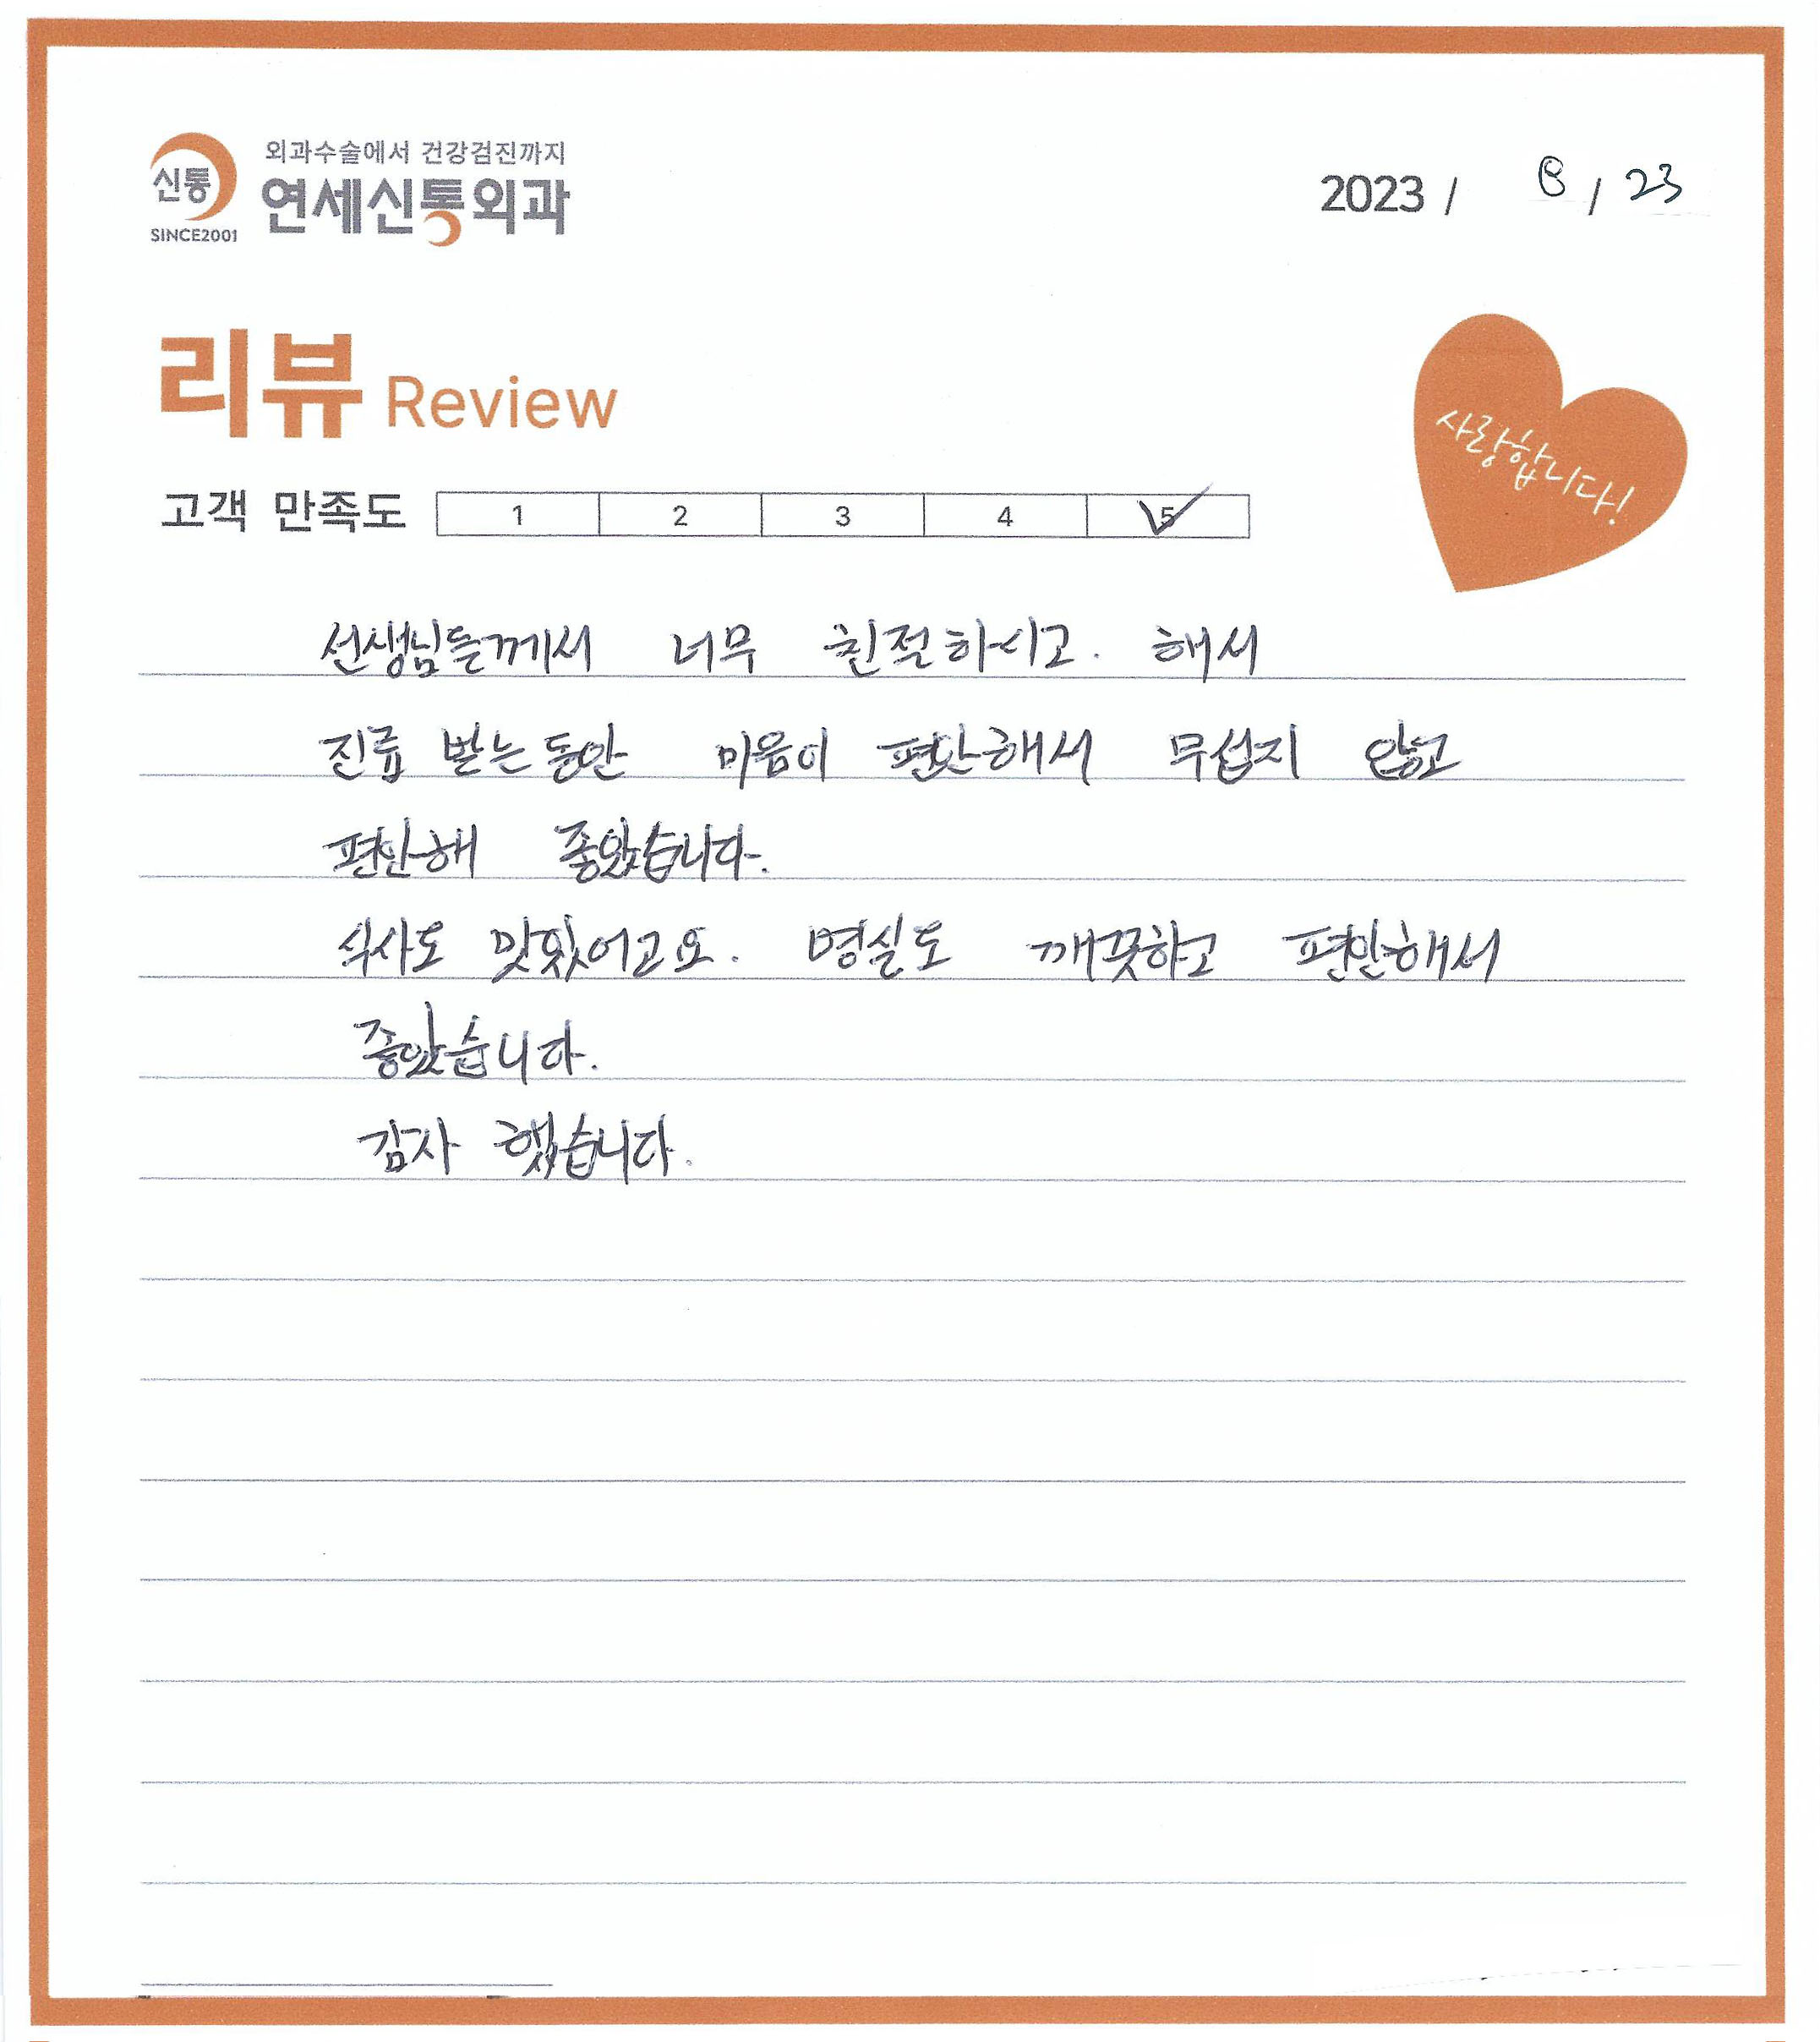 외과수술에서 건강검진까지
신통 연세신통외과
SINCE2001
2023 / 8 / 23
리뷰 Review
사랑합니다!
고객 만족도 1 2 3 4 5
선생님들께서 너무 친절하시고. 해서
진료 받는동안 마음이 편안해서 무섭지 않고
편안해 좋았습니다.
식사도 맛있어고요. 병실도 깨끗하고 편안해서
좋았습니다.
감사 했습니다.